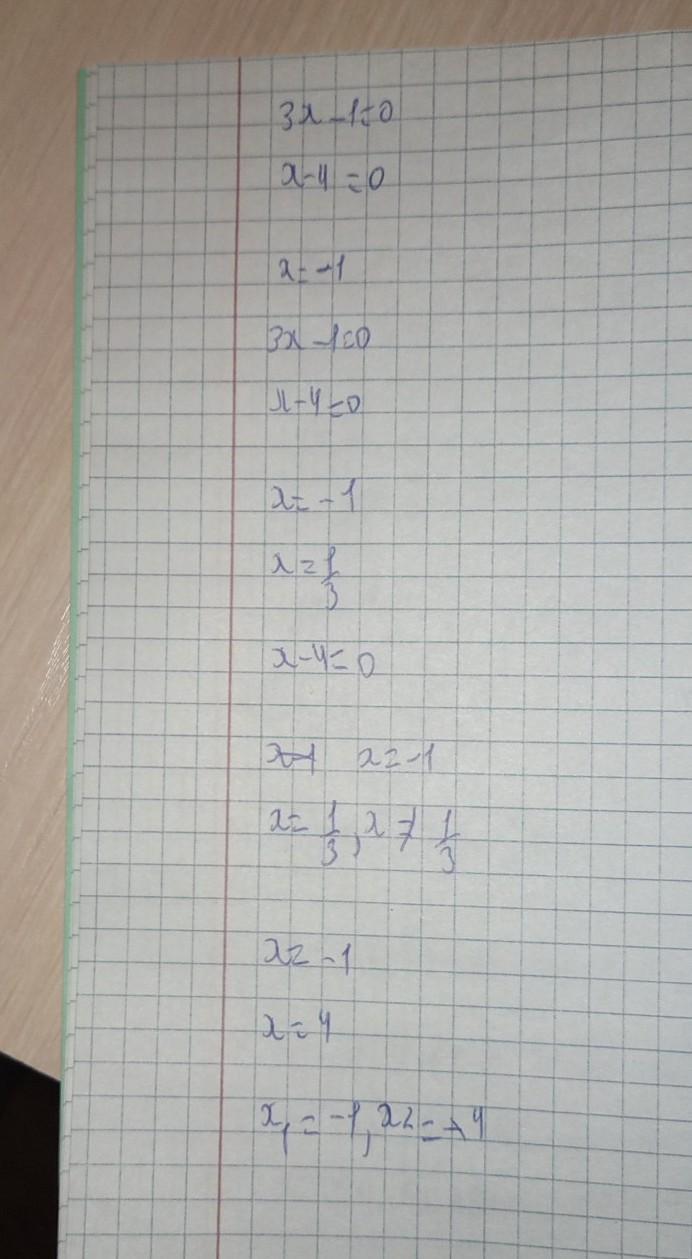 3x - 1 = 0
x - 4 = 0
x = -1
3x - 1 = 0
x - 4 = 0
x = -1
x = 1/3
x - 4 = 0
x = -1
x = 1/3, x ≠ 1/3
x = -1
x = 4
x₁ = -1, x2 =